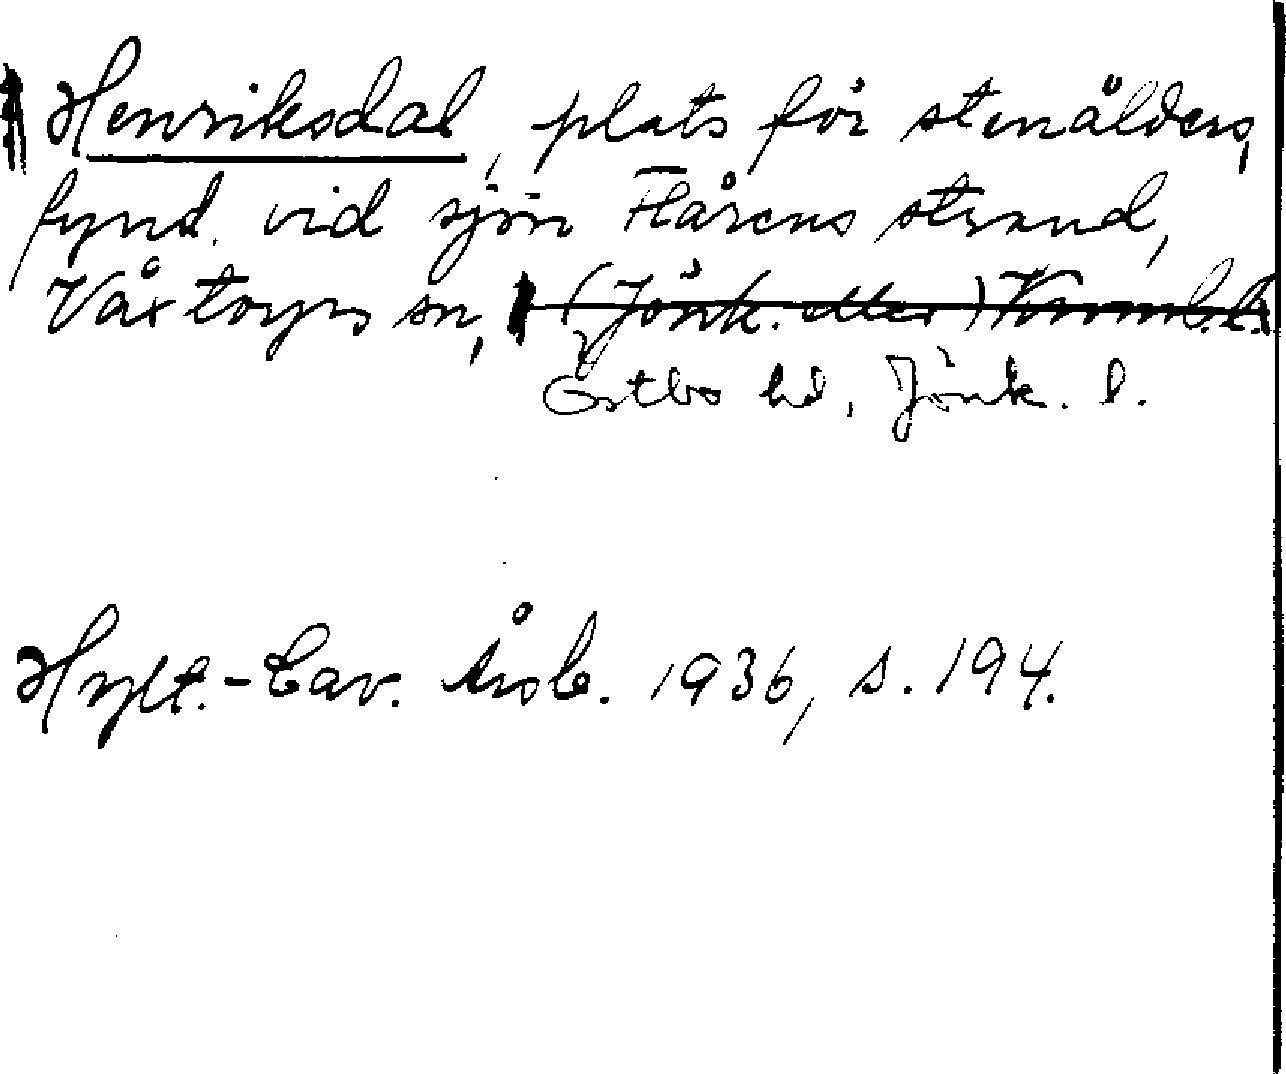 Henriksdal, plats för stenålders,
fynd. vid sjön Flårens strand,
Våxtorps sn, (Jönk. eller) Kronob. l.
Östbo hd, Jönk. l.
Hylt.-Cav. Årsb. 1936, s. 194.